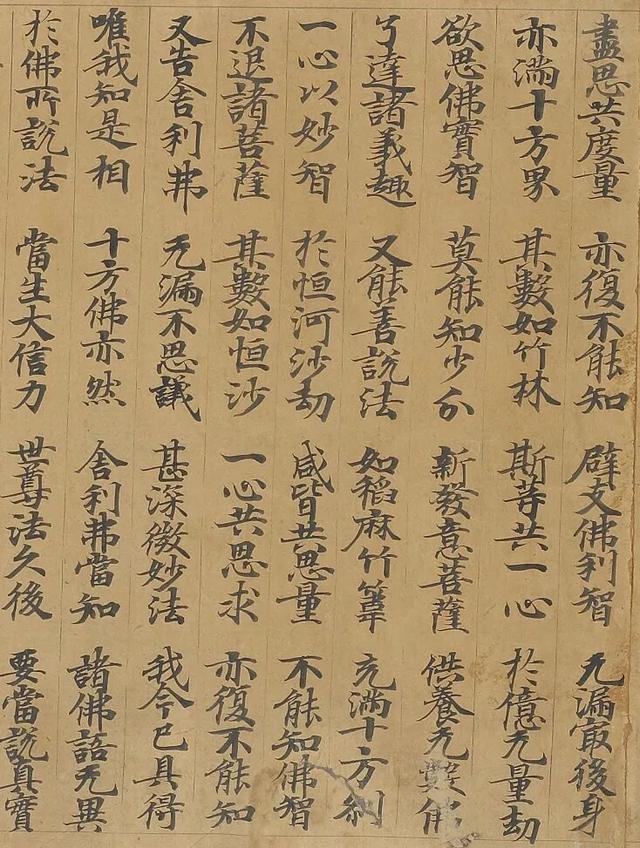 盡思共度量 亦復不能知 辟支佛利智 无漏冣後身
亦滿十方界 其數如竹林 斯等共一心 於億无量劫
欲思佛實智 莫能知少分 新發意菩薩 供養无數佛
了達諸義趣 又能善說法 如稻麻竹葦 充滿十方刹
一心以妙智 於恒河沙劫 咸皆共思量 不能知佛智
不退諸菩薩 其數如恒沙 一心共思求 亦復不能知
又告舍利弗 无漏不思議 甚深微妙法 我今已具得
唯我知是相 十方佛亦然 舍利弗當知 諸佛語无異
於佛所說法 當生大信力 世尊法久後 要當說真實